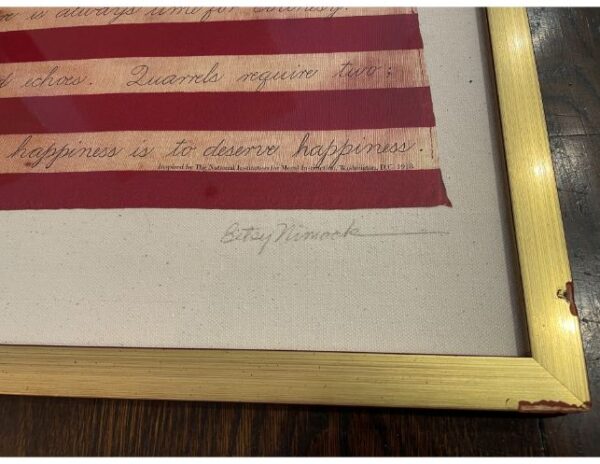 is always time for courtesy.
echoes. Quarrels require two;
happiness is to deserve happiness.
Inspired by The National Institution for Moral Instruction, Washington, D.C. 1918.
Betsy Nimock